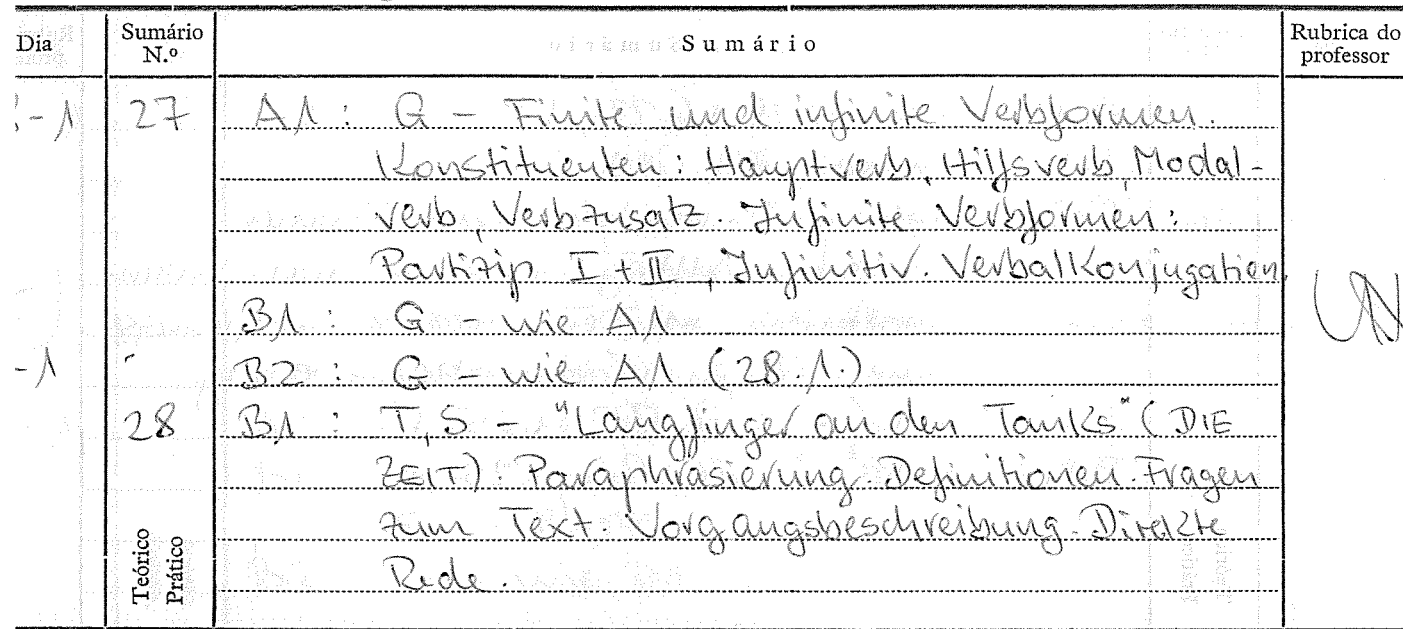 Dia Sumário N.º Sumário Rubrica do professor
-1 27 A1: G – Finite und infinite Verbformen.
Konstituenten: Hauptverb, Hilfsverb, Modal-
verb, Verbzusatz. Infinite Verbformen:
Partizip I + II, Infinitiv. Verbalkonjugation.
B1: G – wie A1
-1 B2: G – wie A1 (28.1.)
28 B1: T, S – "Langfinger an den Tanks" (DIE
ZEIT): Paraphrasierung. Definitionen. Fragen
zum Text. Vorgangsbeschreibung. Direkte
Rede.
Teórico
Prático